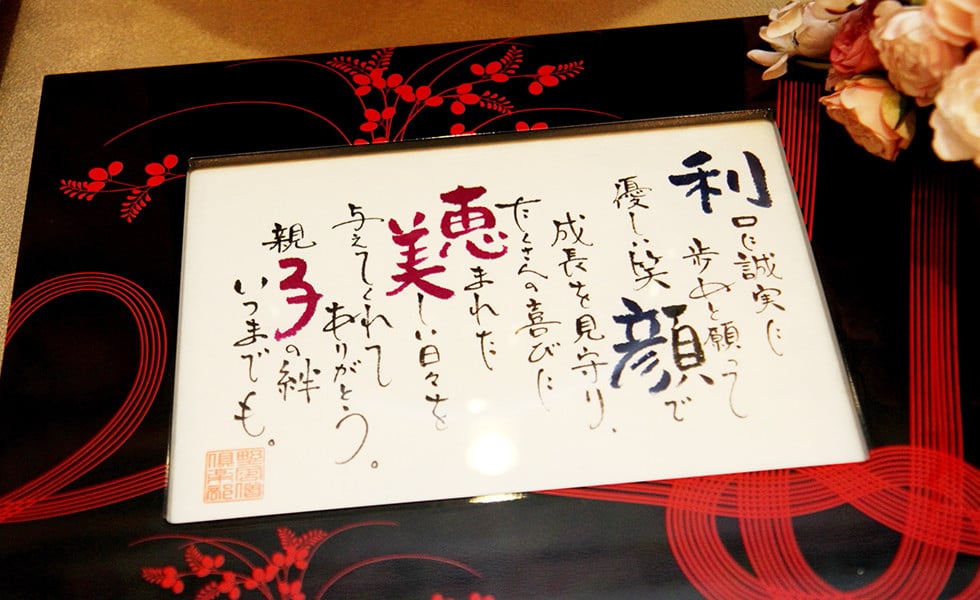 利口に
誠実に
歩めと
願って
優しい笑顔で
成長を見守り、
たくさんの喜びに
恵まれた
美しい日々を
与えてくれて
ありがとう。
親子の絆
いつまでも。